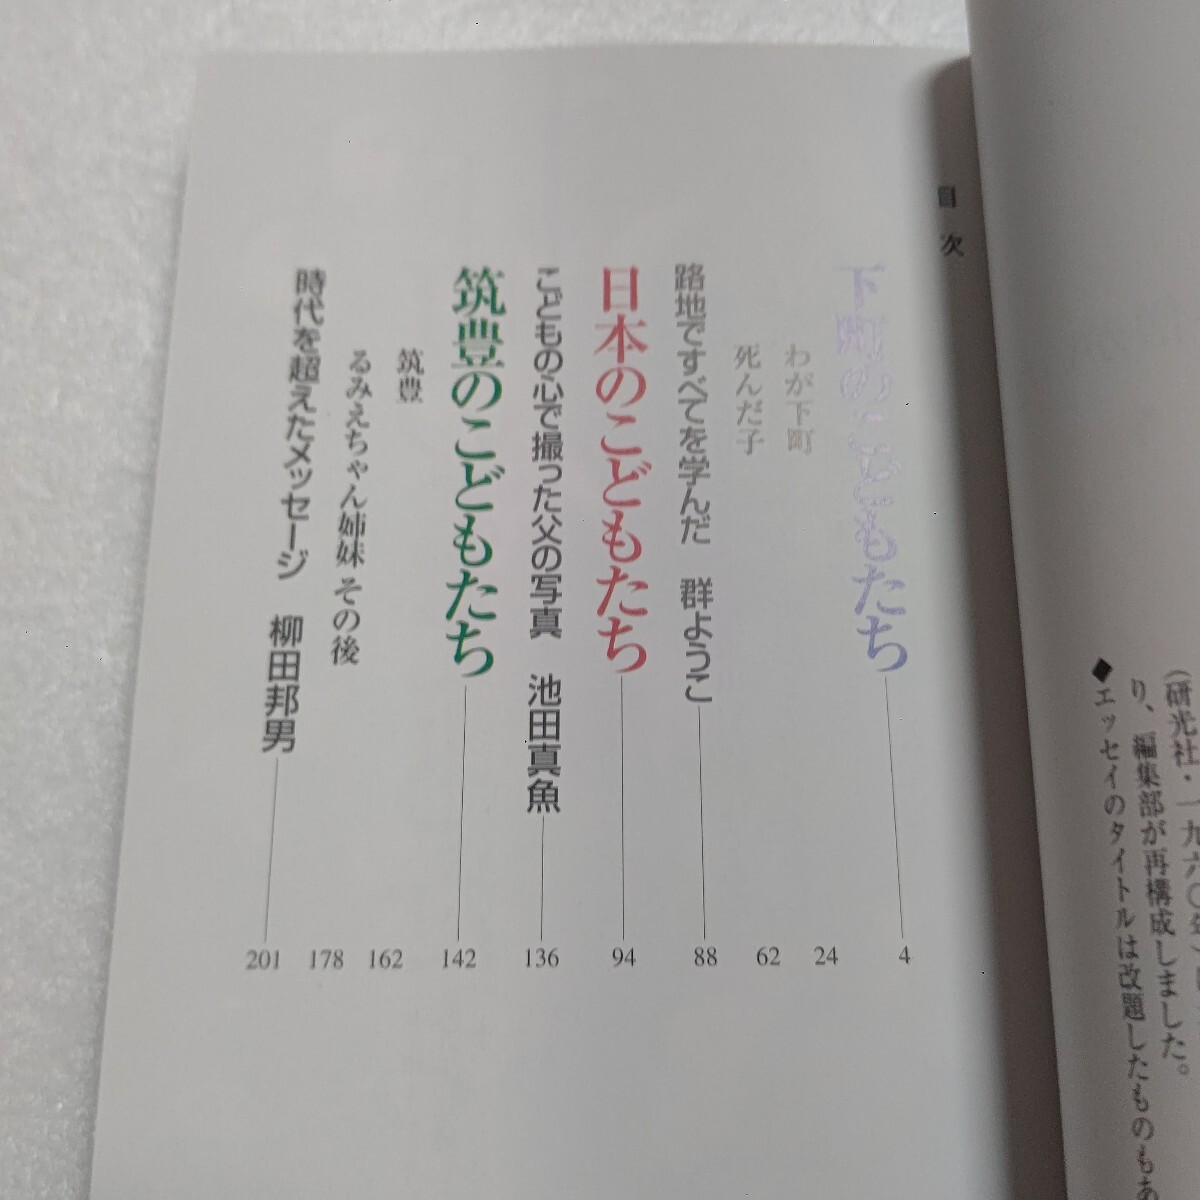 (研光社・一九六〇年
り、編集部が再構成しました。
◆エッセイのタイトルは改題したものもあ
目次
下町のこどもたち 4
わが下町 24
死んだ子 62
路地ですべてを学んだ 群ようこ 88
日本のこどもたち 94
こどもの心で撮った父の写真 池田真魚 136
筑豊のこどもたち 142
筑豊 162
るみえちゃん姉妹 その後 178
時代を超えたメッセージ 柳田邦男 201